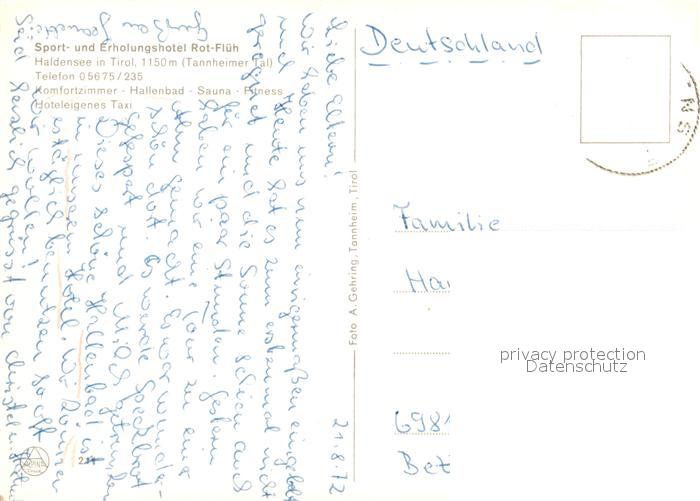 Sport- und Erholungshotel Rot-Flüh
Haldensee in Tirol, 1150 m (Tannheimer Tal)
Telefon 0 56 75 / 235
Komfortzimmer · Hallenbad · Sauna · Fitness
Hoteleigenes Taxi
21.8.72
Liebe Eltern!
Wir haben uns nun einigermaßen eingelebt
und heute hat es zum erstenmal nicht
geregnet und die Sonne schien auch
für ein paar Stunden. Gestern
haben wir eine Tour zu einer
Alm gemacht. Es war wunder-
schön dort. Es wurde Speckbrot
gespeist und Milch getrunken
Dieses schöne Hallenbad ist
in unserem Hotel. Wir können
es täglich benutzen so oft
wir wollen!
Seid herzlich gegrüsst von
Foto A. Gehring, Tannheim, Tirol
Deutschland
Familie
Ha
6981
Bet
privacy protection
Datenschutz